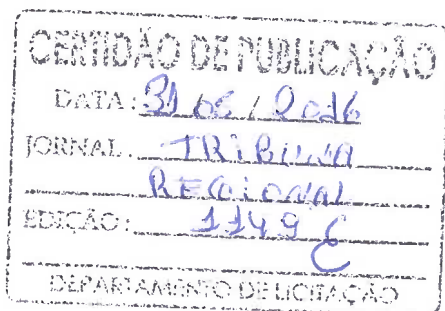 CERTIDÃO DE PUBLICAÇÃO
DATA: 31 / 05 / 2016
JORNAL: TRIBUNA
REGIONAL
EDIÇÃO: 1149
DEPARTAMENTO DE LICITAÇÃO